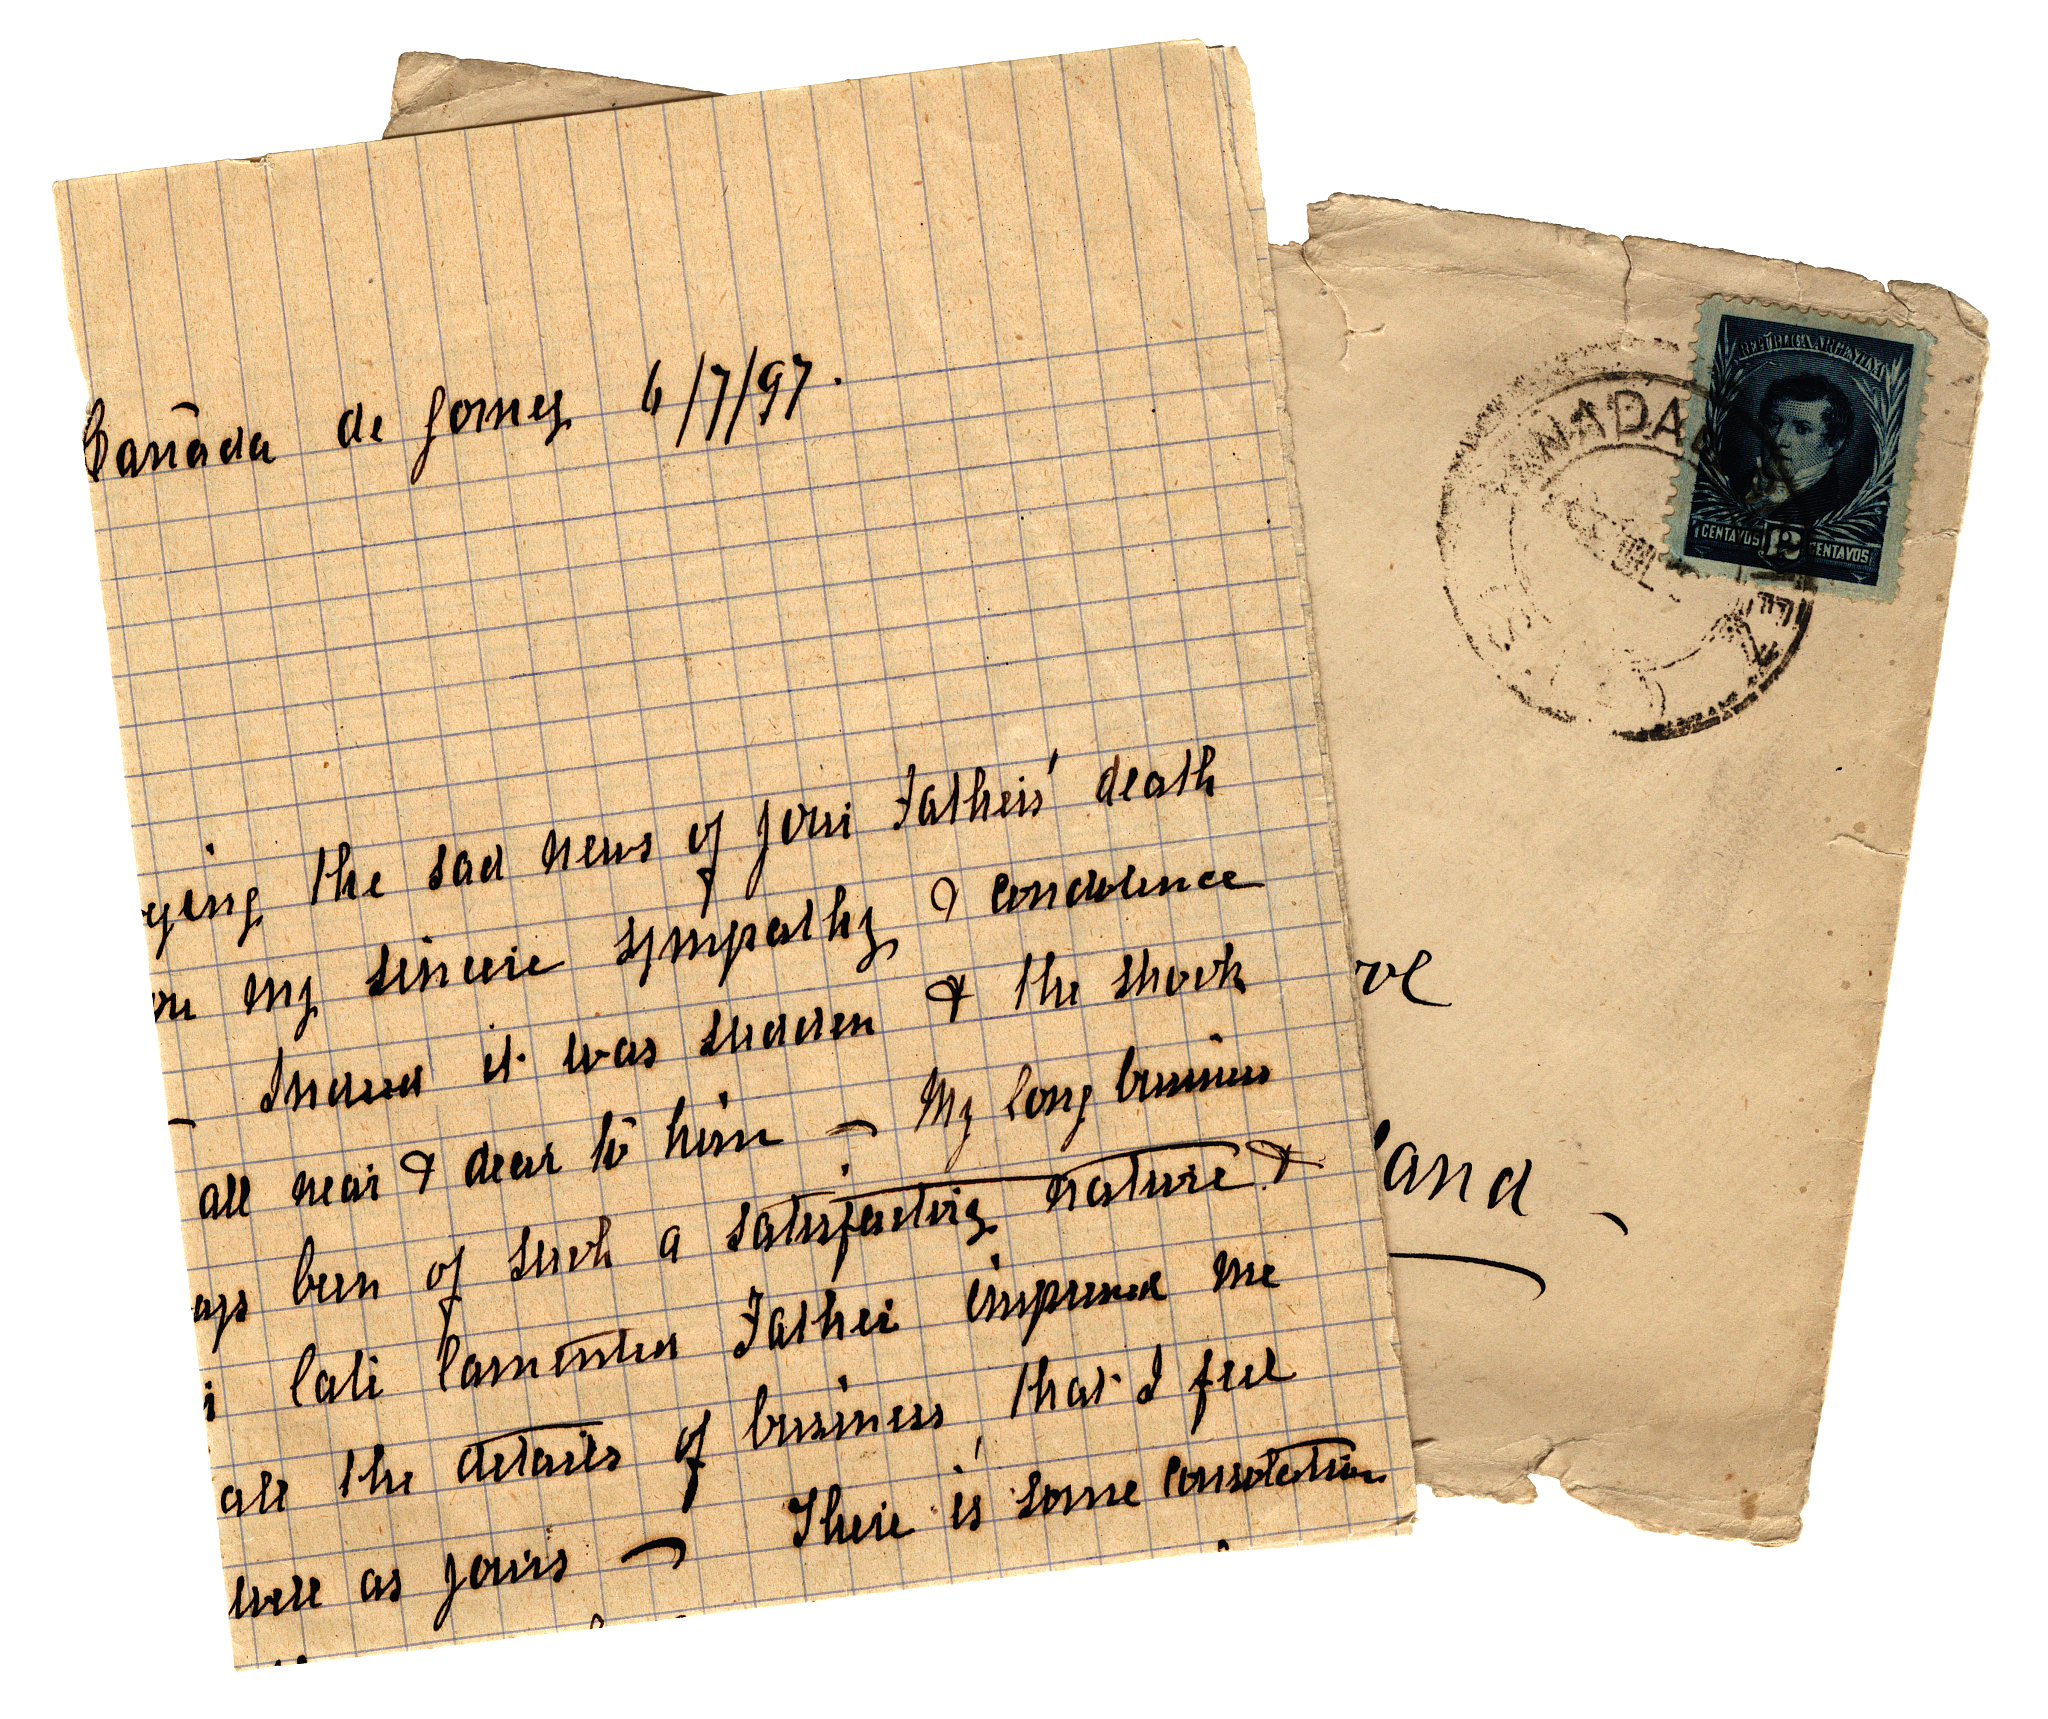 Cañada de Gomez 6/7/97.
ying the sad news of your Fathers' death
my sincere sympathy & condolence
– Indeed it was sudden & the shock
all near & dear to him – My long business
ays been of such a satisfactory nature &
late lamented Father impressed me
all the details of business that I feel
well as yours – There is some consolation
REPÚBLICA ARGENTINA
CENTAVOS 12 CENTAVOS
CAÑADA DE
JUL
ove
land –